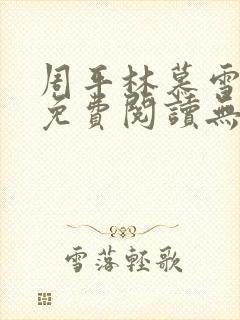 周平林慕雪
免費閱讀無
雪落輕歌